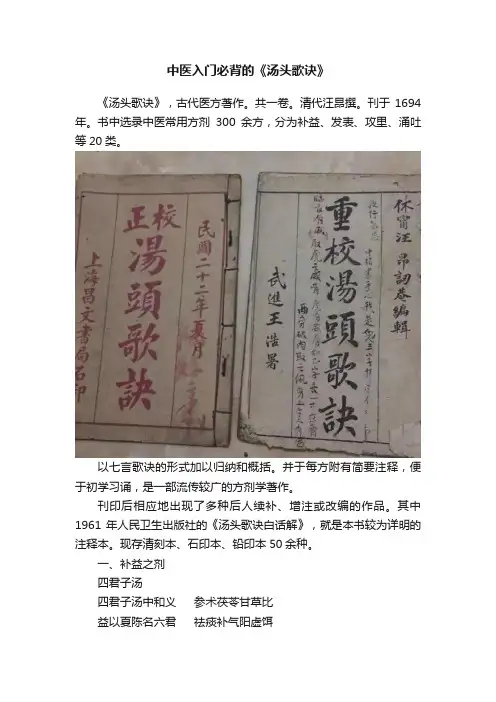 中医入门必背的《汤头歌诀》
《汤头歌诀》，古代医方著作。共一卷。清代汪昂撰。刊于1694
年。书中选录中医常用方剂300余方，分为补益、发表、攻里、涌吐
等20类。
校正
湯頭歌訣
民國二十二年夏月
上海昌文書局石印
休甯汪昂訒菴編輯
重校湯頭歌訣
武進王浩署
以七言歌诀的形式加以归纳和概括。并于每方附有简要注释，便
于初学习诵，是一部流传较广的方剂学著作。
刊印后相应地出现了多种后人续补、增注或改编的作品。其中
1961年人民卫生出版社的《汤头歌诀白话解》，就是本书较为详明的
注释本。现存清刻本、石印本、铅印本50余种。
一、补益之剂
四君子汤
四君子汤中和义 参术茯苓甘草比
益以夏陈名六君 祛痰补气阳虚饵